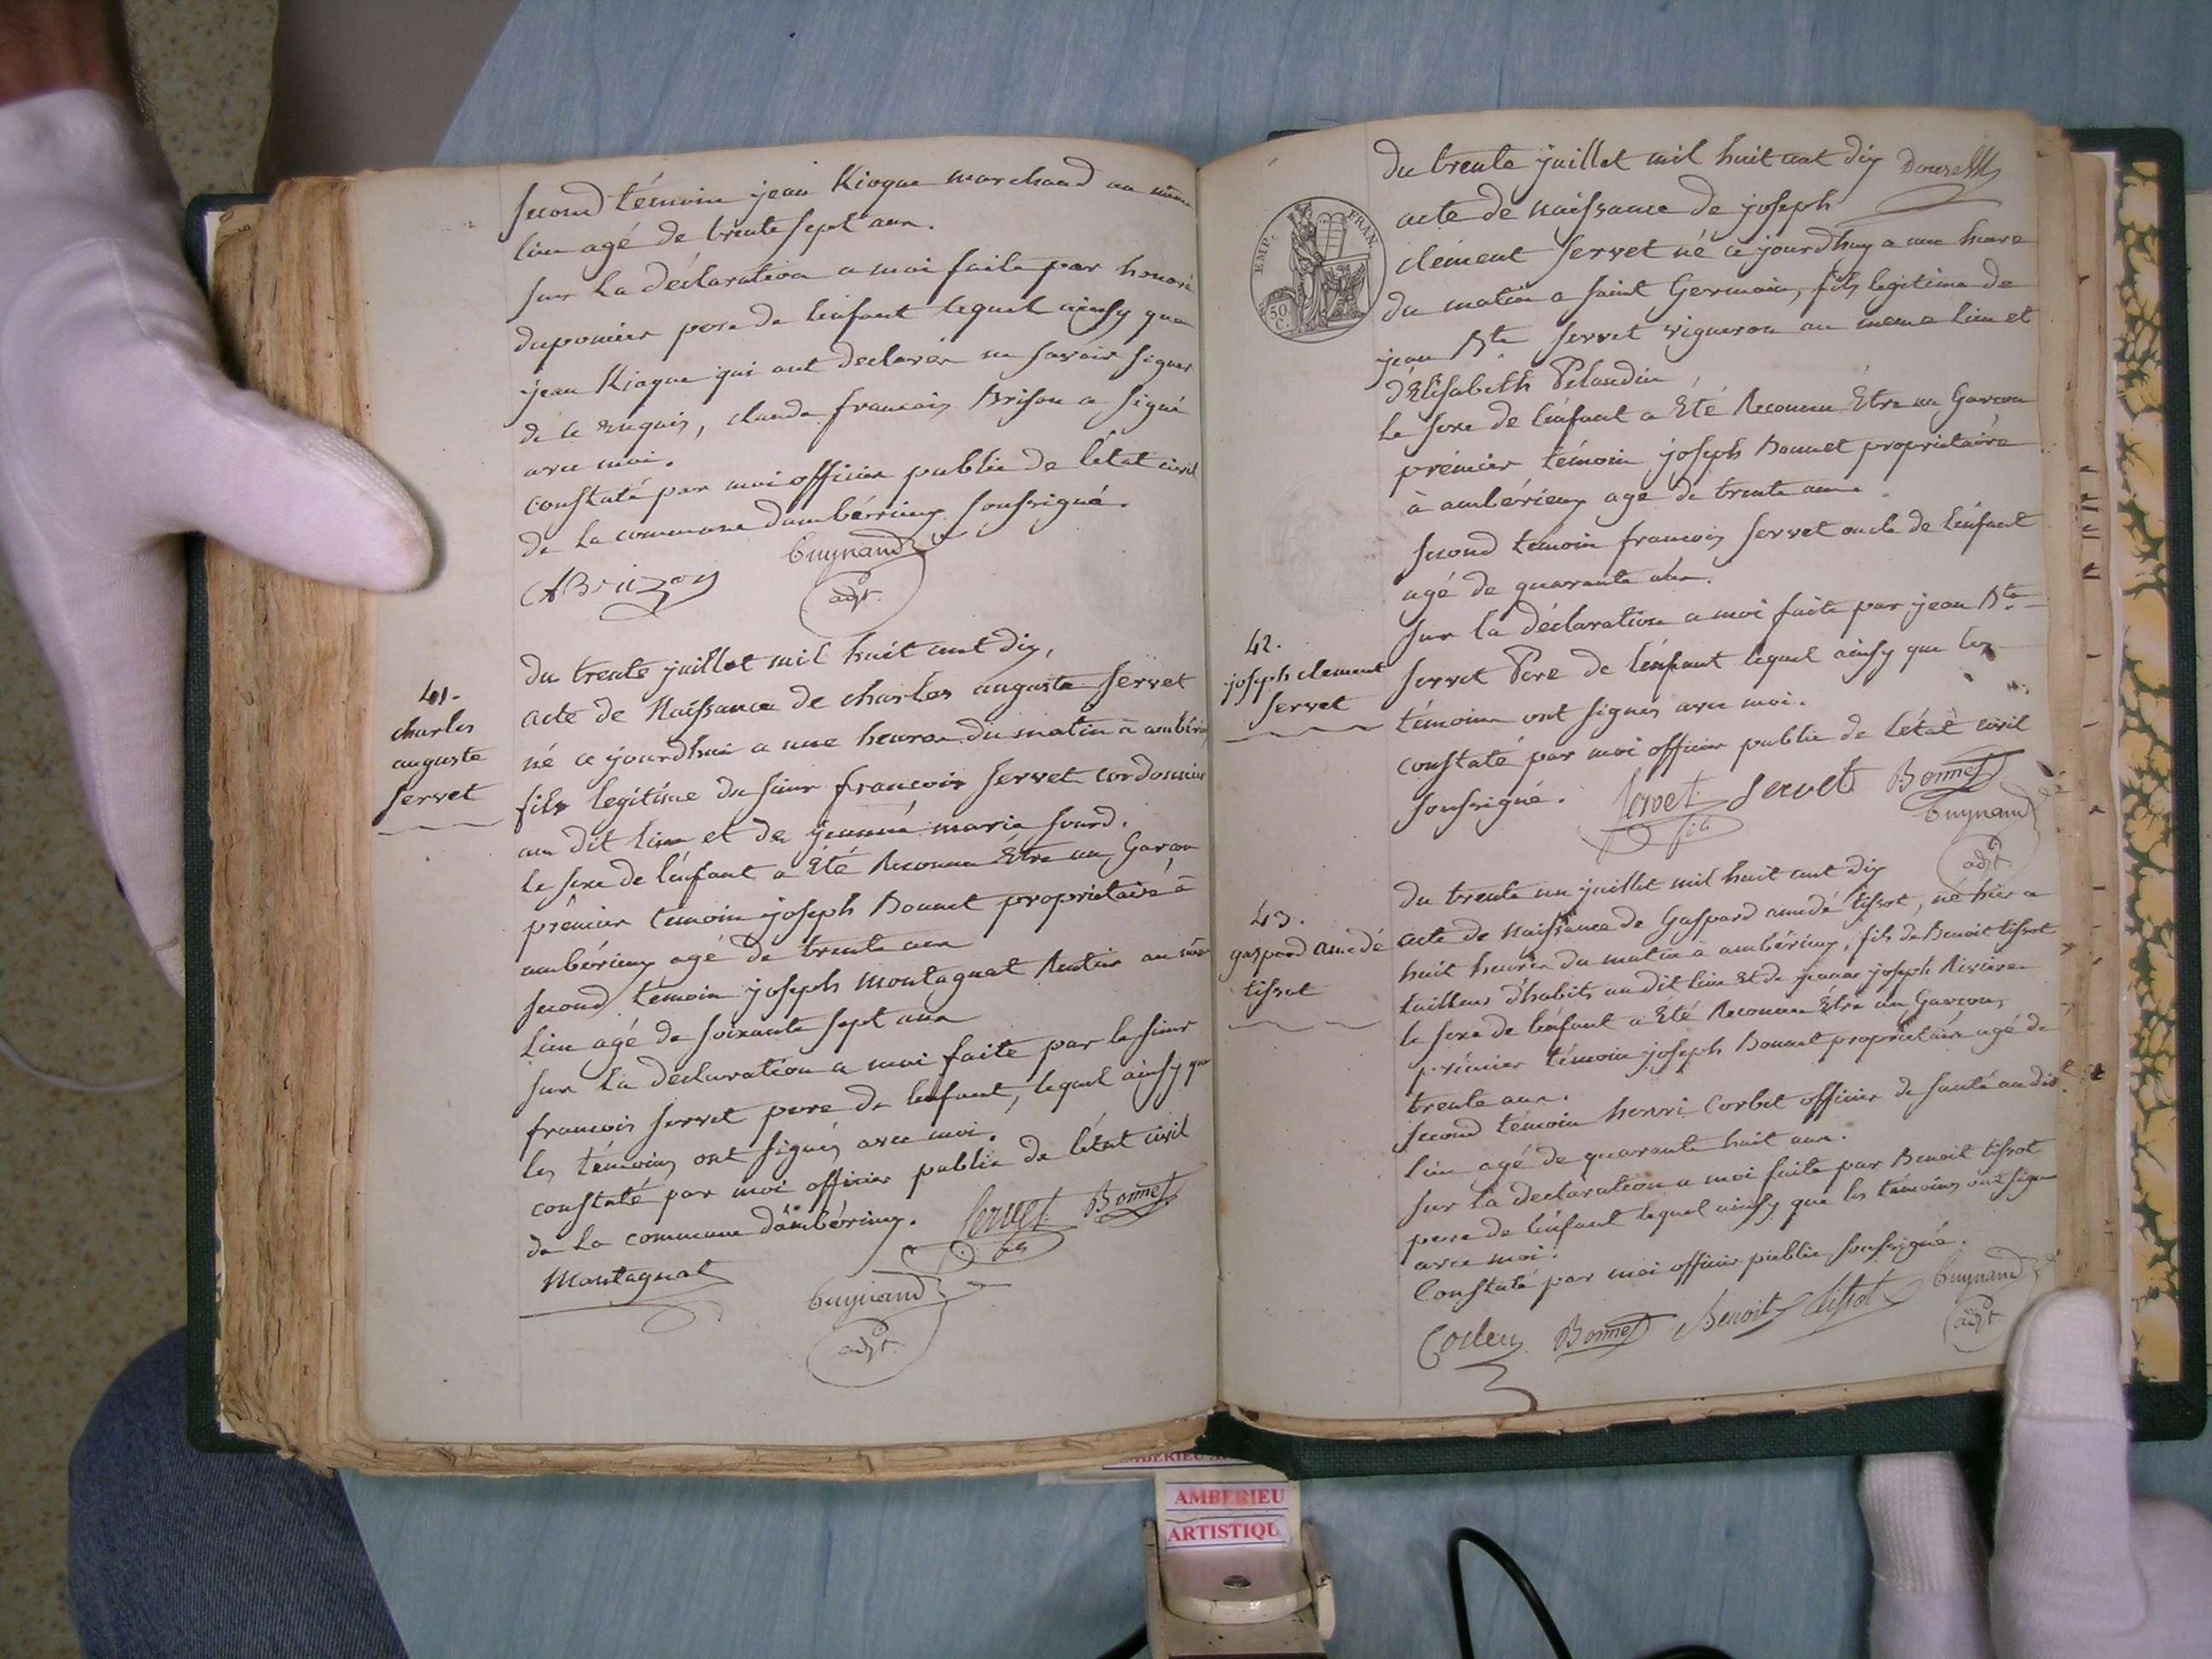 second témoin jean Kiogue marchand au même
lieu agé de trente sept ans.
sur la déclaration a moi faite par honoré
duponier pere de lenfant lequel ainsy que
jean Kiogue qui ont declarés ne savoir signer
de ce enquis, claude francois Brison a signé
avec moi.
constaté par moi officier public de létat civil
de la commune dambérieux soussigné.
CF Brizon
Cuynand
adjt.
41.
charles
auguste
servet
du trente juillet mil huit cent dix,
acte de Naissance de charles auguste servet
né ce jourdhui a une heure du matin à ambérieux
fils legitime du sieur francois servet cordonnier
au dit lieu et de jeanne marie sourd.
le sexe de lénfant a Eté Reconnu Etre un Garcon
prémier témoin joseph Bonnet propriétaire à
ambérieux agé de trente ans
second témoin joseph montagnat Rentier au même
Lieu agé de soixante sept ans
sur la declaration a moi faite par le sieur
francois servet pere de lenfant, lequel ainsy que
les témoins ont signés avec moi.
constaté par moi officier public de létat civil
de la commune dambérieux.
Servet fils
Bonnet
Montagnat
Cuynand
adjt.
du trente juillet mil huit cent dix
acte de naissance de joseph
EMP. FRAN.
50 C.
clément servet né ce jourdhuy a une heure
du matin a saint Germain, fils legitime de
jean Bte servet vigneron au meme lieu et
d'Elisabeth Pelaudin
le sexe de lénfant a Eté Reconnu Etre un Garcon
prémier témoin joseph Bonnet propriétaire
à ambérieux agé de trente ans.
second témoin francois servet oncle de lénfant
agé de quarante ans.
sur la déclaration a moi faite par jean Bte
42.
joseph clement
servet
servet Pere de lénfant lequel ainsy que les
témoins ont signés avec moi.
constaté par moi officier public de létat civil
soussigné.
Servet fils
servet
Bonnet
Cuynand
adjt
43.
gaspard amedé
tissot
du trente un juillet mil huit cent dix
acte de naissance de Gaspard amedé tissot, né hier a
huit heures du matin à ambérieux, fils de Benoit tissot
tailleur d'habits au dit lieu Et de jeanne joseph Riviere
le sexe de lénfant a Eté Reconnu Etre un Garcon,
prémier témoin joseph Bonnet propriétaire agé de
trente ans.
second témoin henri Corbet officier de santé au dit
lieu agé de quarante huit ans.
sur la déclaration a moi faite par Benoit tissot
pere de lénfant lequel ainsy que les témoins ont signé
avec moi.
Constaté par moi officier public soussigné.
Bonnet
Benoit tissot
Cuynand
adjt
AMBERIEU
ARTISTIQU